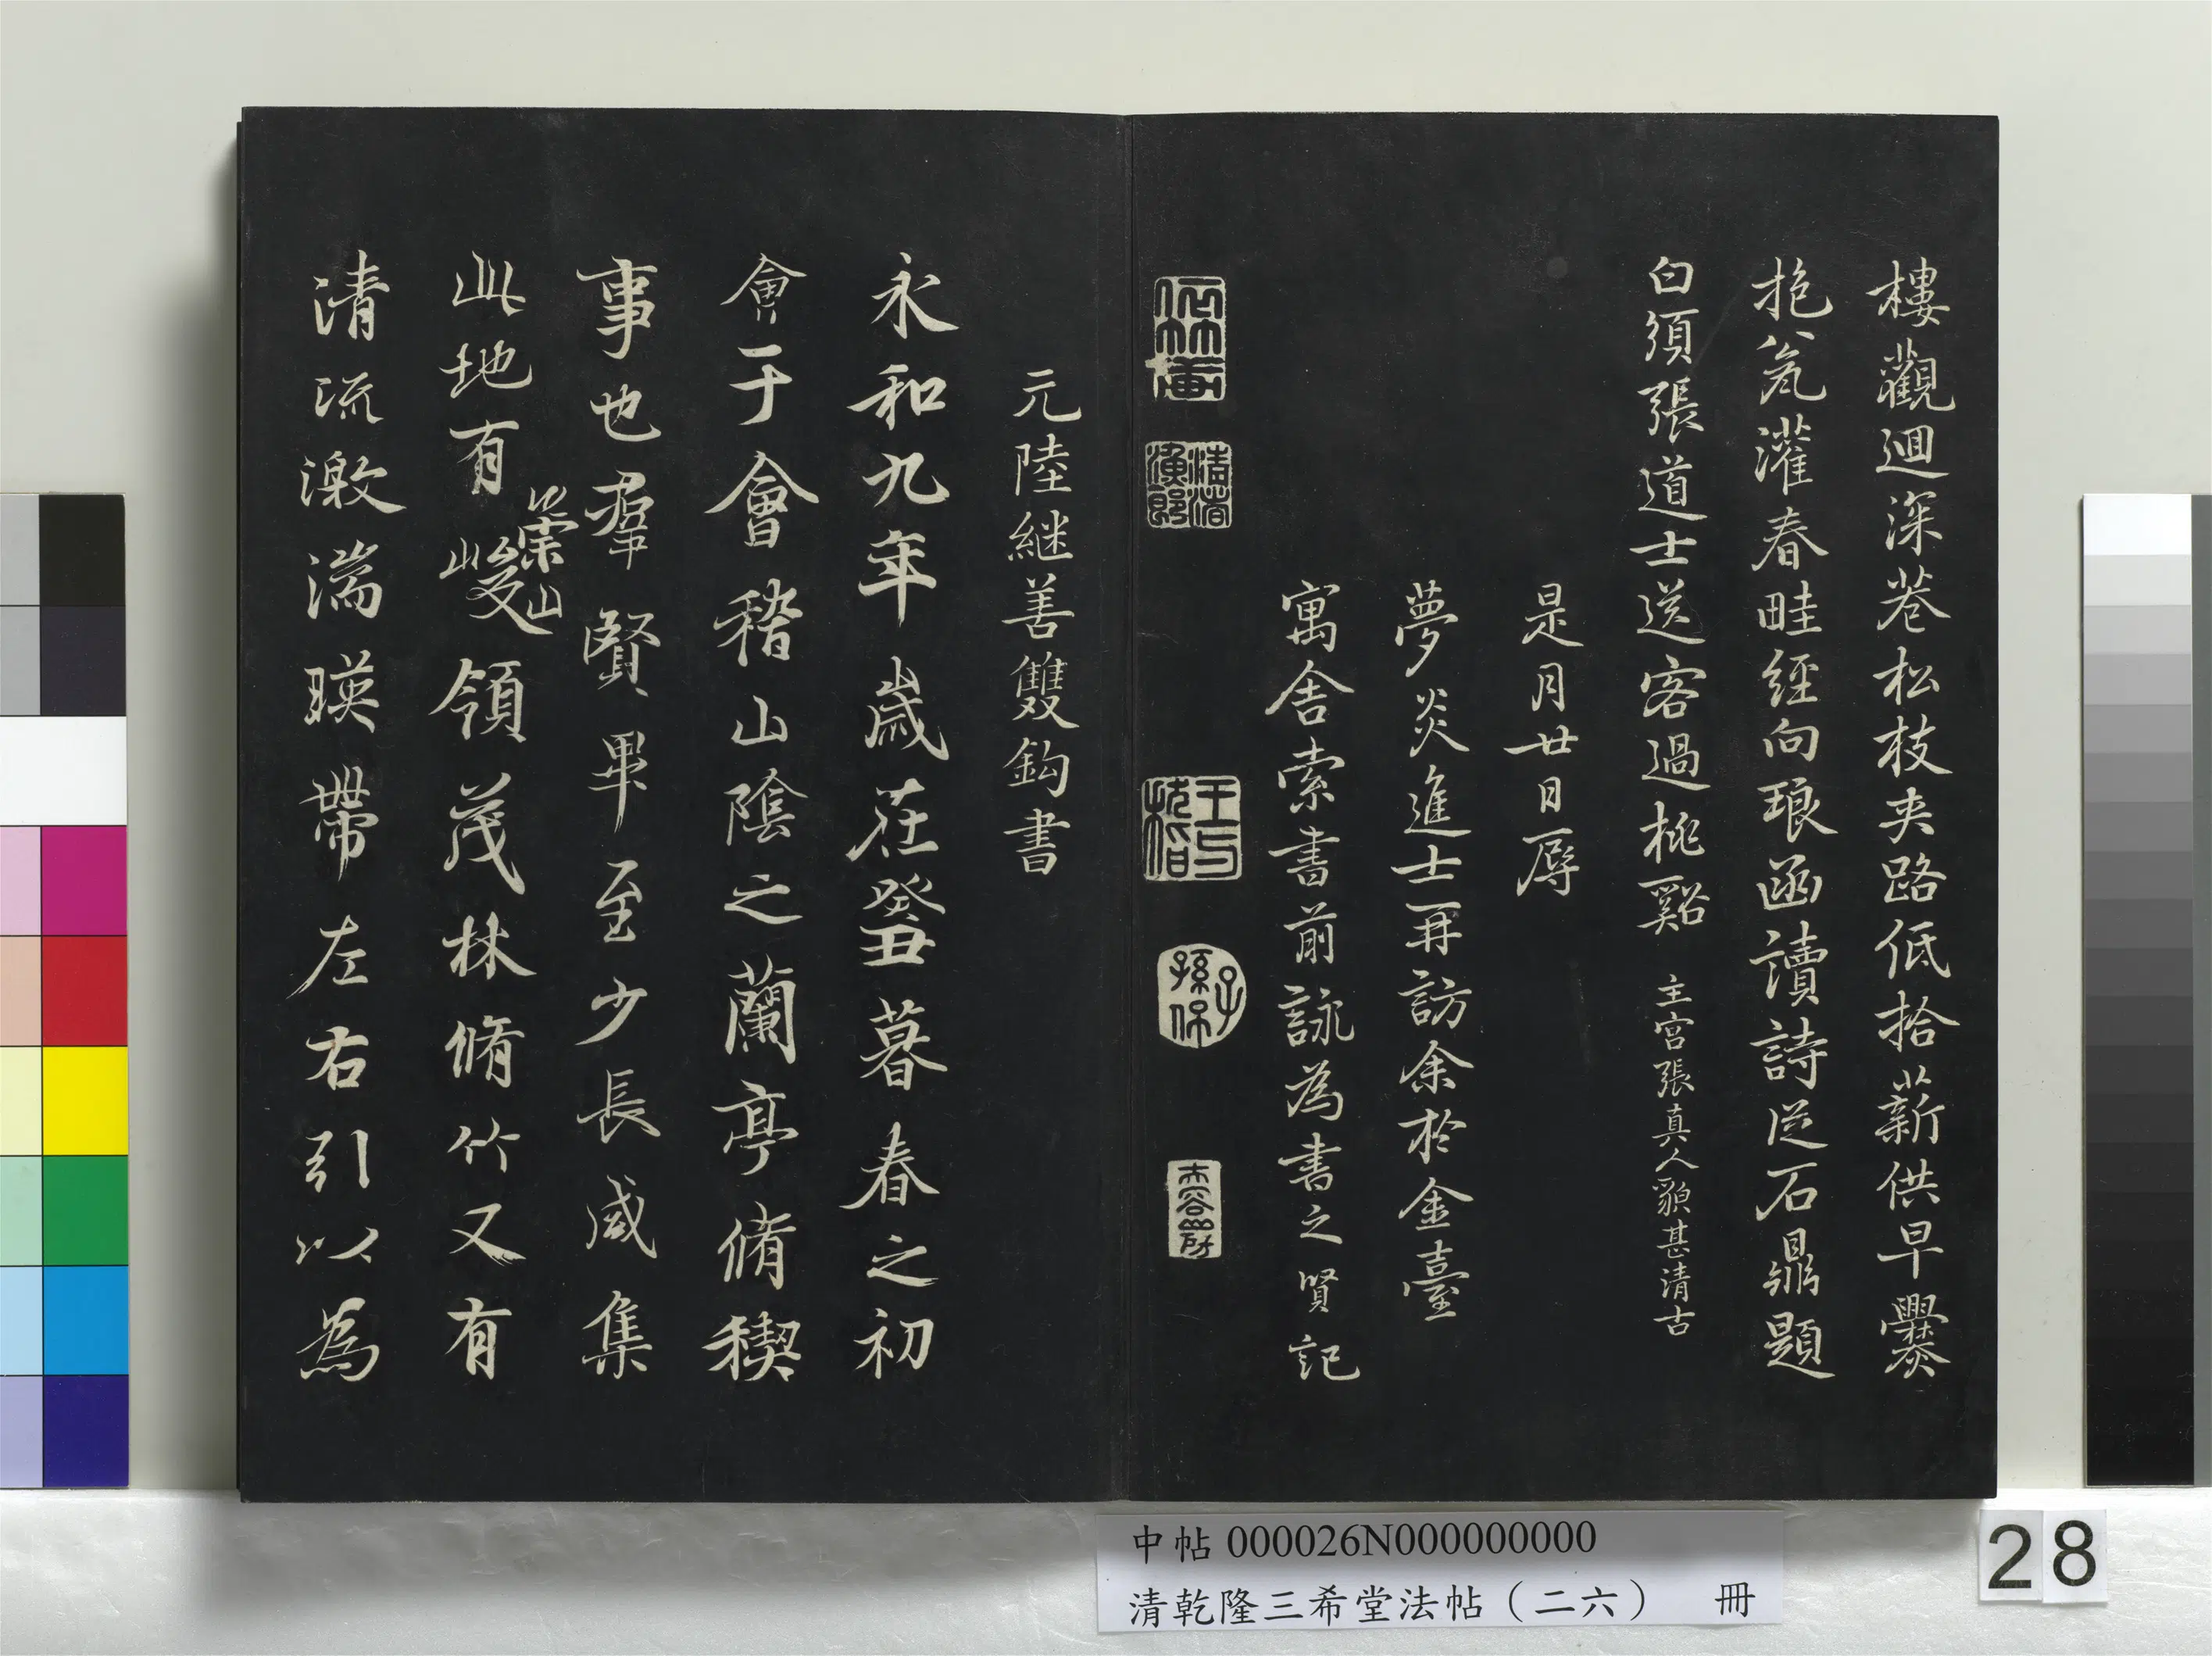 樓觀迴深巷松枝夾路低拾薪供早爨
抱瓮灌春畦經向琅函讀詩從石鼎題
白須張道士送客過桃谿 主宮張真人貌甚清古
是月廿日
夢炎進士再訪余於金臺
寓舍索書前詠為書之賢記
元陸継善雙鈎書
永和九年歲在癸丑暮春之初
會于會稽山陰之蘭亭脩稧
事也羣賢畢至少長咸集
此地有崇山峻領茂林脩竹又有
清流激湍暎帶左右引以為
子孫保
中帖 000026N000000000
清乾隆三希堂法帖（二六） 冊
28